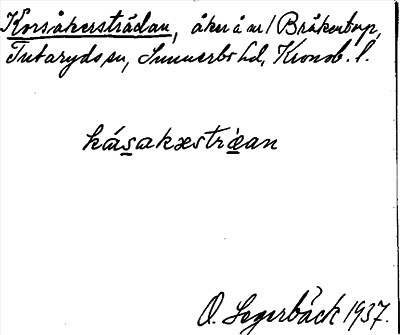 Korsåkerstrådan, åker å nr 1 Bråkentorp,
Tutaryds sn, Sunnerbo hd, Kronob. l.
kásakxstræan
O. Segerbäck 1937.